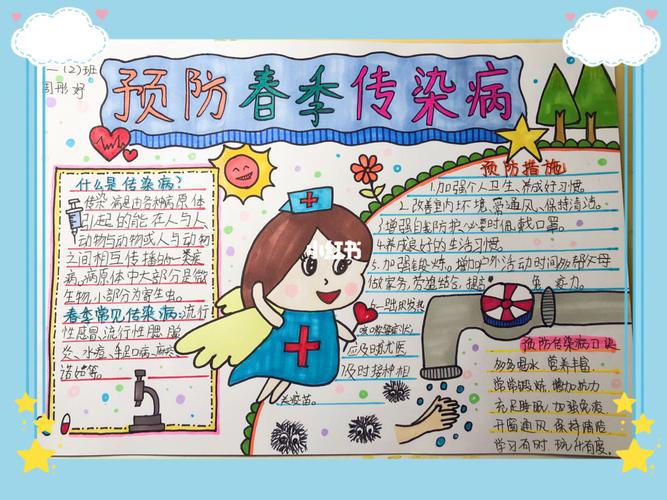 一(2)班
周彤好
预防春季传染病
什么是传染病?
传染病是由各种病原体
引起的能在人与人、
动物与动物或人与动物
之间相互传播的一类疾
病。病原体中大部分是微
生物,小部分为寄生虫。
春季常见传染病:流行
性感冒、流行性腮腺
炎、水痘、手足口病、麻疹
诺如等。
小红书
预防措施
1.加强个人卫生、养成好习惯。
2.改善室内环境、爱通风、保持清洁。
3.增强自我防护、必要时佩戴口罩。
4.养成良好的生活习惯。
5.加强锻炼,增加户外活动时间多帮父母
做家务,劳逸结合,提高免疫力。
6.一旦出现发热
咳嗽等症状,
应及时就医
及时接种相
关疫苗。
预防传染病口诀
多多喝水 营养丰富
常常锻炼 增加抗力
充足睡眠 加强免疫
开窗通风 保持清洁
学习有时 玩乐有度。